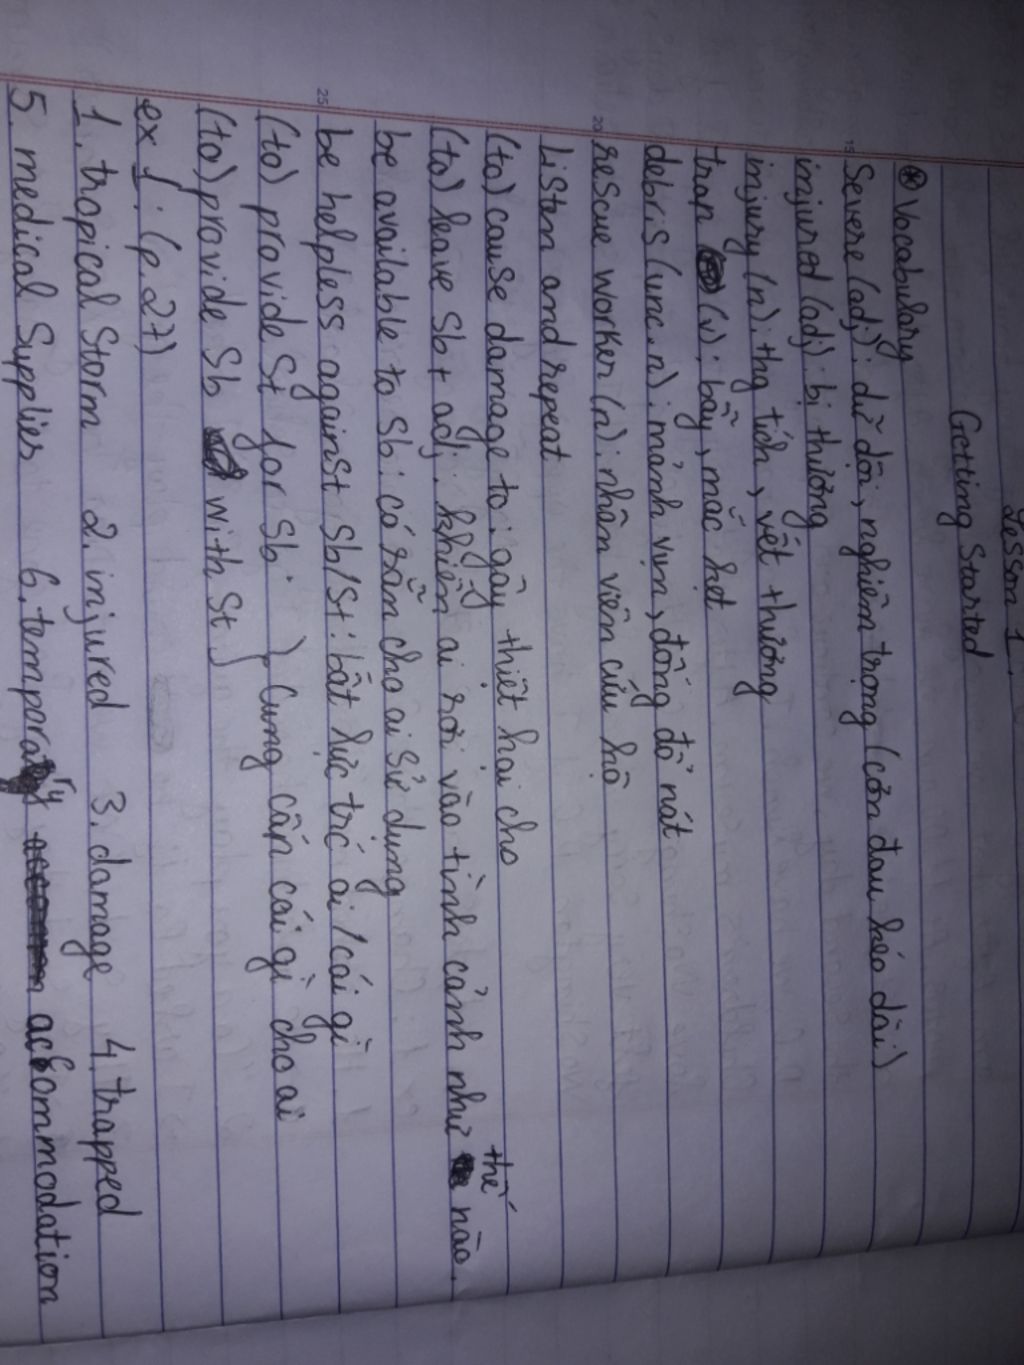 Lesson 1.
Getting Started
* Vocabulary
15
Severe (adj): dữ dội, nghiêm trọng (cơn đau kéo dài)
injured (adj): bị thương
injury (n): thg tích, vết thương
trap (v): bẫy, mắc kẹt
debris (unc.n): mảnh vụn, đống đổ nát
20
rescue worker (n): nhân viên cứu hộ
Listen and repeat
(to) cause damage to: gây thiệt hại cho
(to) leave Sb + adj: khiến ai rơi vào tình cảnh như thế nào.
be available to Sb: có sẵn cho ai sử dụng
25
be helpless against Sb/St: bất lực trc ai/cái gì
(to) provide St for Sb } Cung cấp cái gì cho ai
(to) provide Sb with St }
ex 1: (p.27)
1. tropical Storm 2. injured 3. damage 4. trapped
5. medical Supplies 6. temporary accommodation